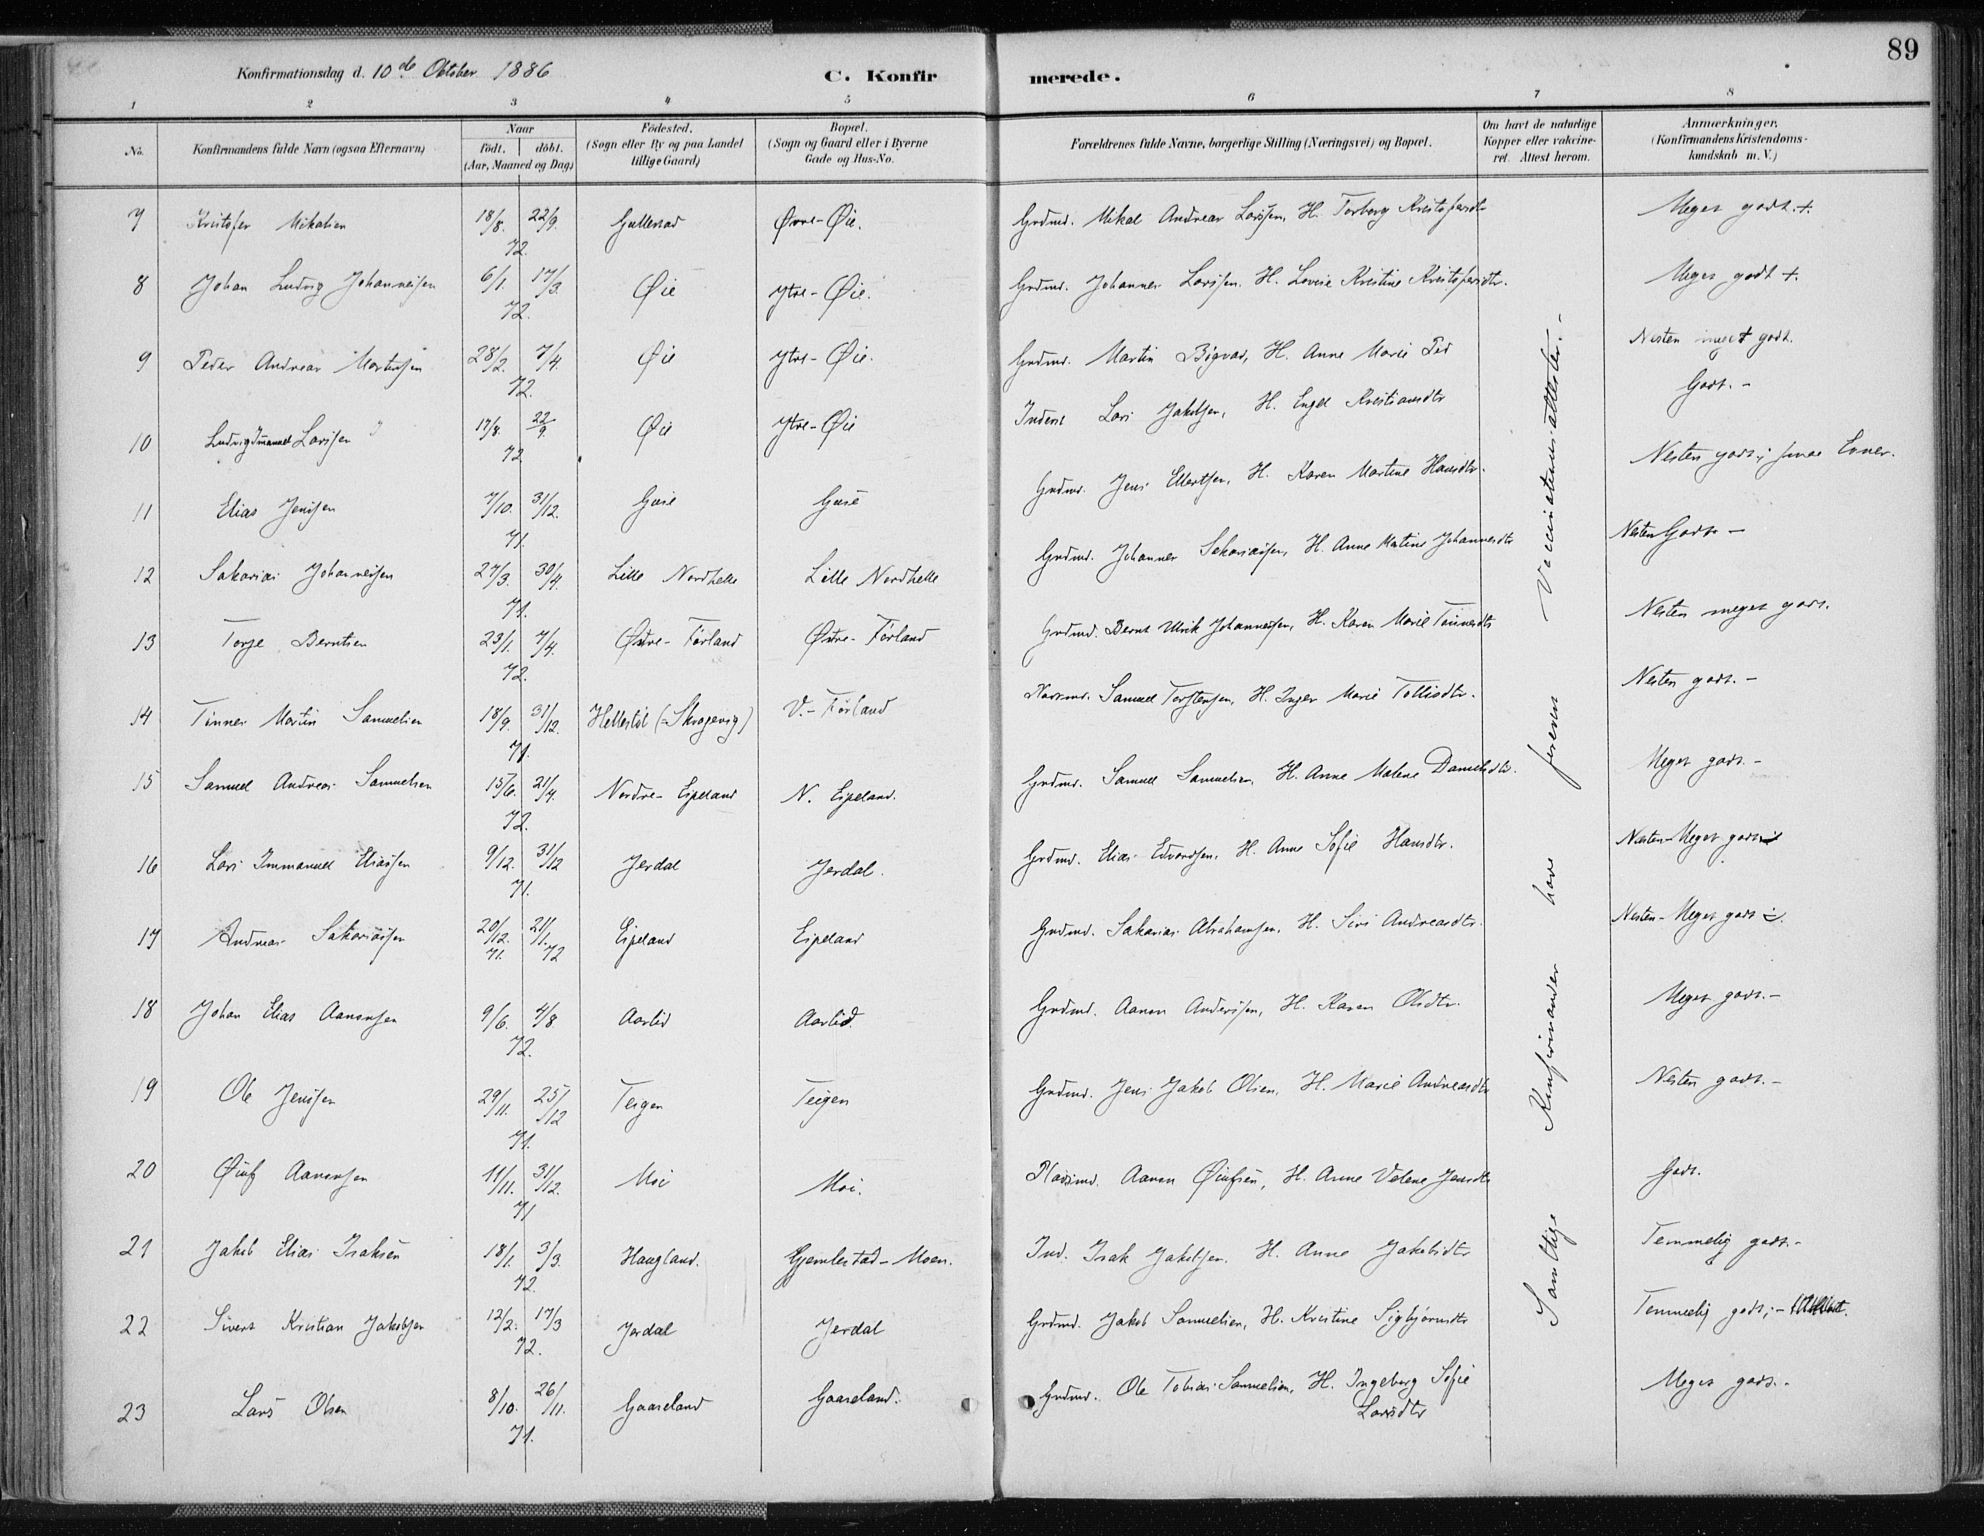 89
Konfirmationsdag d. 10de Oktober 1886
C. Konfir merede.
1 2 3 4 5 6 7 8
No. Konfirmandens fulde Navn (ogsaa Efternavn) Naar født. døbt. (Aar, Maaned og Dag) Fødested. (Sogn eller By og paa Landet tillige Gaard) Bopæl. (Sogn og Gaard eller i Byerne Gade og Hus-No. Forældrenes fulde Navne, borgerlige Stilling (Næringsvei) og Bopæl. Om havt de naturlige Kopper eller vaccineret. Attest herom. Anmærkninger. (Konfirmandens Kristendomskundskab m. V.)
7 Kristofer Mikalsen 18/8. 22/9. 72. Gullestad Øvre-Øie. Grdmd. Mikal Andreas Larssen, H. Torborg Kristofersdtr Meget godt.+.
8 Johan Ludvig Johannessen 6/1. 17/3. 72. Øie Ytre-Øie. Grdmd. Johannes Larssen. H. Lovise Kristine Kristofersdtr. Meget godt +.
9 Peder Andreas Martinsen 28/2. 7/4. 72. Øie Ytre-Øie. Grdmd. Martin Bøgvad, H. Anne Marie Ped Nesten meget godt.
10 Ludvig Imanuel Larssen 17/8. 22/9. 72 Øie Ytre-Øie Inderst Lars Jakobsen, H. Engel Kristiansdtr Godt. -
11 Elias Jenssen 7/10. 31/12. 71. Guse Guse Grdmd. Jens Ellertsen, H. Karen Martine Hansdtr. Nesten godt; smaa Evner.
12 Sakarias Johannessen 27/3. 30/4. 71. Lille Nordhelle Lille Nordhelle Grdmd. Johannes Sakariassen, H. Anne Matine Johannesdtr Nesten Godt -
13 Torje Berntsen 23/1. 7/4. 72. Østre-Førland Østre-Førland Grdmd. Bernt Ulrik Johannessen, H. Karen Marie Tønnesdtr Nesten meget godt.
14 Tønnes Martin Samuelsen 18/9. 31/12. 71. Hellestøl (-Skrogevig) V.-Førland Pladsmd. Samuel Torstensen, H. Inger Marie Tollisdtr. Nesten godt. -
15 Samuel Andreas Samuelsen 15/6. 21/4. 72. Nordre-Eipeland N. Eipeland. Grdmd. Samuel Samuelsen, H. Anne Malene Danielsdtr. Meget godt. -
16 Lars Immanuel Eliassen 9/12. 31/12 71. Jerdal Jerdal. Grdmd. Elias Edvardsen. H. Anne Sofie Hansdtr. Nesten-Meget godt
17 Andreas Sakariassen 20/12. 71. 21/1. 72 Eipeland Eipeland Grdmd. Sakarias Abrahamsen, H. Siri Andreasdtr. Nesten-Meget godt
18 Johan Elias Aanensen 9/6. 4/8 72. Aarlid Aarlid. Grdmd. Aanen Anderssen, H. Karen Olsdtr. Meget godt. -
19 Ole Jenssen 29/11. 25/12 71. Teigen Teigen Grdmd. Jens Jakob Olsen, H. Marie Andreasdtr Nesten godt. -
20 Øiuf Aanensen 11/11. 31/12. 71 Moi Moi. Pladsmd. Aanen Øiufsen, H. Anne Velene Jensdtr Godt.
21 Jakob Elias Isaksen 18/1. 3/3. 72. Haugland. Gjemlestad-Moen. Ind. Isak Jakobsen. H. Anne Jakobsdtr Temmelig godt. -
22 Sivert Kristian Jakobsen 12/2. 17/3 72. Jerdal Jerdal Grdmd. Jakob Samuelsen, H. Kristine Sigbjørnsdtr Temmelig godt; -
23 Lars Olsen 8/10. 26/11. 71. Gaaseland Gaaseland. Grdmd. Ole Tobias Samuelsen, H. Ingeborg Sofie Larsdtr Meget godt. -
Samtlige Konfirmander have foreviist Vaccinationsattester. -